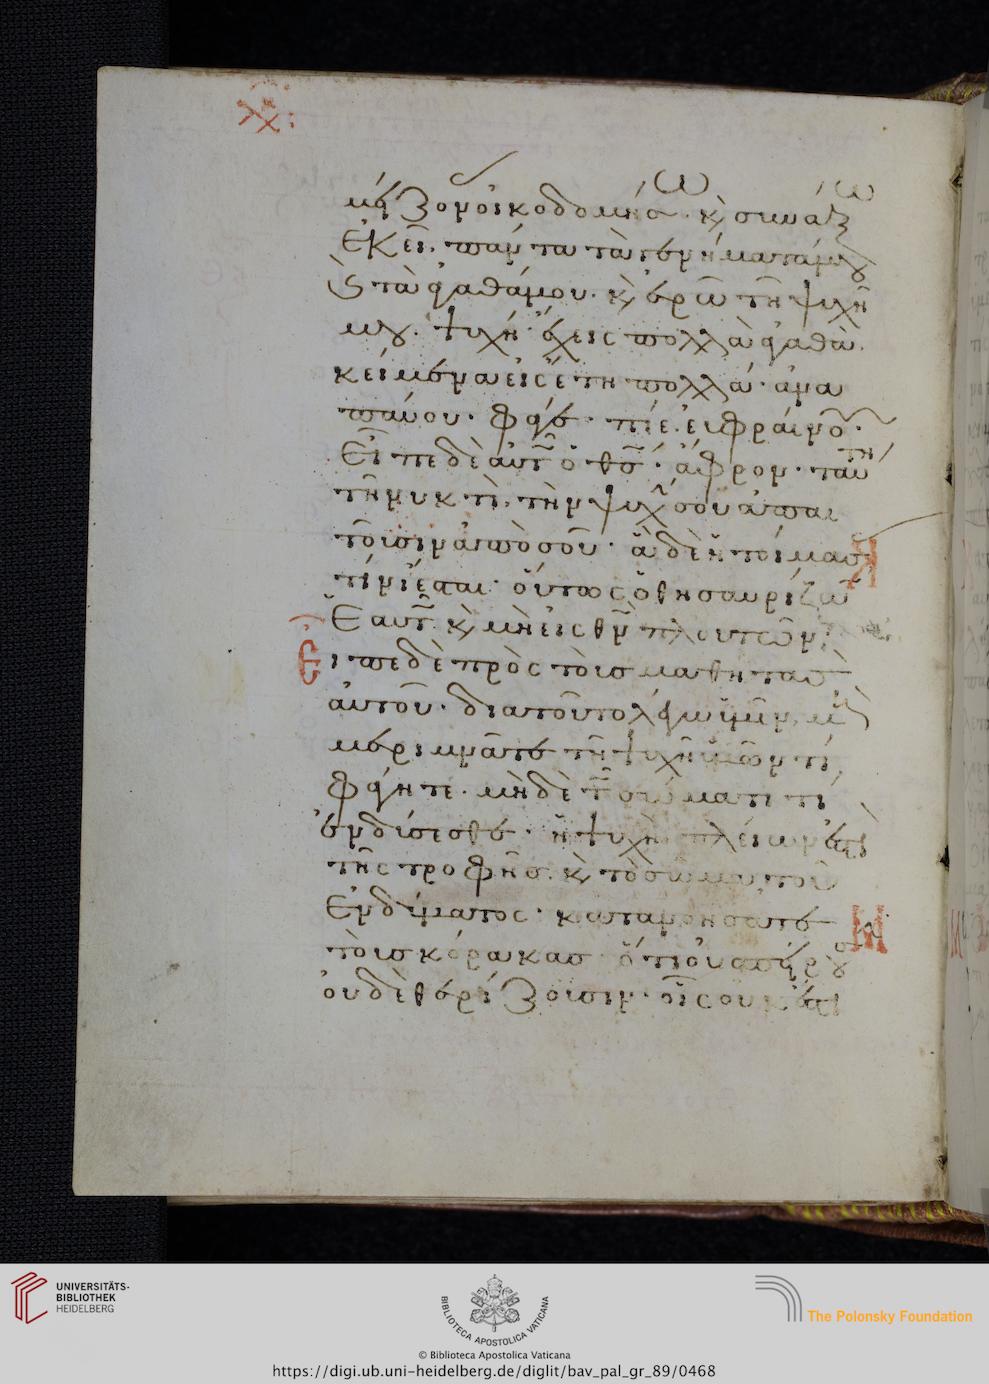 μείζονα οἰκοδομήσω· κ συνάξω
ἐκεῖ πάντα τὰ γενήματά μου
κ τὰ ἀγαθά μου· κ ἐρῶ τῇ ψυχῇ
μου· ψυχὴ ἔχεις πολλὰ ἀγαθὰ
κείμενα εἰς ἔτη πολλά· ἀνα
παύου· φάγε· πίε· εὐφραίνου·
Εἶπε δὲ αὐτῷ ὁ θς· ἄφρον· ταύτῃ
τῇ νυκτὶ, τὴν ψυχήν σου ἀπαι
τοῦσιν ἀπὸ σοῦ· ἃ δὲ ἡτοίμασας
τίνι ἔσται· οὕτως ὁ θησαυρίζων
ἑαυτῷ κ μὴ εἰς θν πλουτῶν·
Εἶπε δὲ πρὸς τοὺς μαθητὰς
αὐτοῦ· διατοῦτο λέγω ὑμῖν, μὴ
μεριμνᾶτε τῇ ψυχῇ ὑμῶν τί
φάγητε· μὴ δὲ τῷ σώματι τί
ἐνδύσεσθε· ἡ ψυχὴ πλείων ἐστι
τῆς τροφῆς· κ τὸ σῶμα τοῦ
ἐνδύματος· κατανοήσατε
τοὺς κόρακας ὅτι οὐ σπείρου
οὐδὲ θερίζουσιν· οἷς οὐκ ἔστι
UNIVERSITÄTS-
BIBLIOTHEK
HEIDELBERG
BIBLIOTECA APOSTOLICA VATICANA
The Polonsky Foundation
© Biblioteca Apostolica Vaticana
https://digi.ub.uni-heidelberg.de/diglit/bav_pal_gr_89/0468